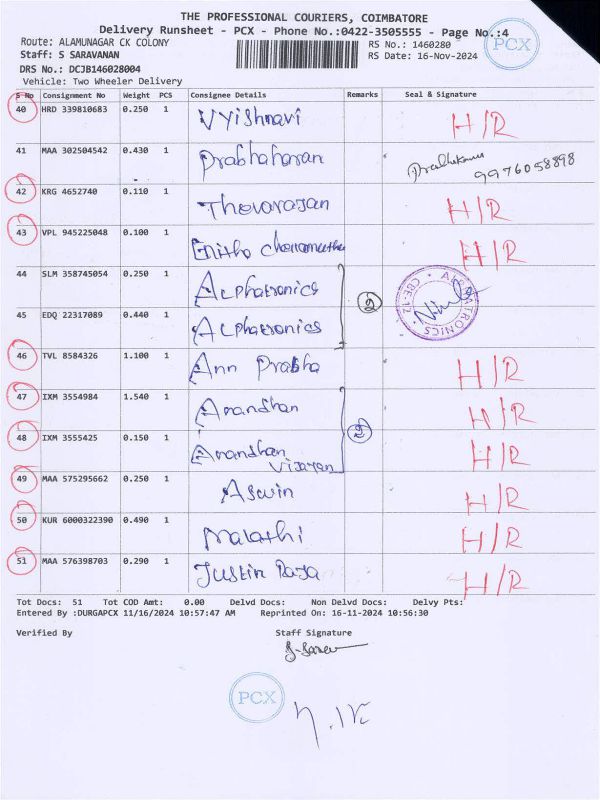 THE PROFESSIONAL COURIERS, COIMBATORE
Delivery Runsheet - PCX - Phone No.:0422-3505555 - Page No.:4
Route: ALAMUNAGAR CK COLONY RS No.: 1460280
Staff: S SARAVANAN RS Date: 16-Nov-2024
DRS No.: DCJB146028004
Vehicle: Two Wheeler Delivery
PCX
S No Consignment No Weight PCS Consignee Details Remarks Seal & Signature
40 HRD 339810683 0.250 1 Vyishnavi H/R
41 MAA 302504542 0.430 1 Prabhaharan 9976058898
42 KRG 4652740 0.110 1 Thevarajan H/R
43 VPL 945225048 0.100 1 H/R
44 SLM 358745054 0.250 1 Alphatronics 2 ALPHATRONICS CBE-12
45 EDQ 22317089 0.440 1 Alphatronics
46 TVL 8584326 1.100 1 Ann Prabha H/R
47 IXM 3554984 1.540 1 Anandhan 2 H/R
48 IXM 3555425 0.150 1 Anandhan Vijayan H/R
49 MAA 575295662 0.250 1 Aswin H/R
50 KUR 6000322390 0.490 1 Malathi H/R
51 MAA 576398703 0.290 1 Justin Raja H/R
Tot Docs: 51 Tot COD Amt: 0.00 Delvd Docs: Non Delvd Docs: Delvy Pts:
Entered By :DURGAPCX 11/16/2024 10:57:47 AM Reprinted On: 16-11-2024 10:56:30
Verified By Staff Signature
PCX